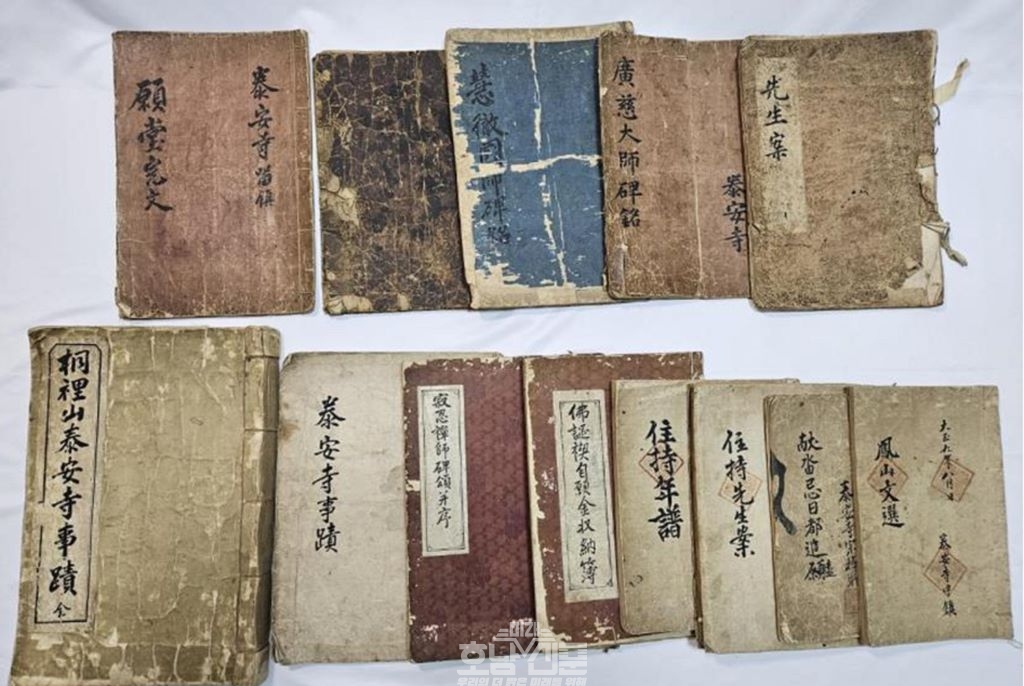 願堂完文
泰安寺留鎭
慧徹國師碑銘
廣慈大師碑銘
泰安寺
先生案
桐裡山泰安寺事蹟 全
泰安寺事蹟
寂忍禪師碑頌并序
佛誕禊自願金收納簿
住持年譜
住持先生案
献畓忌日都進
泰安寺
鳳山文選
大正九年八月日
泰安寺
호남신문